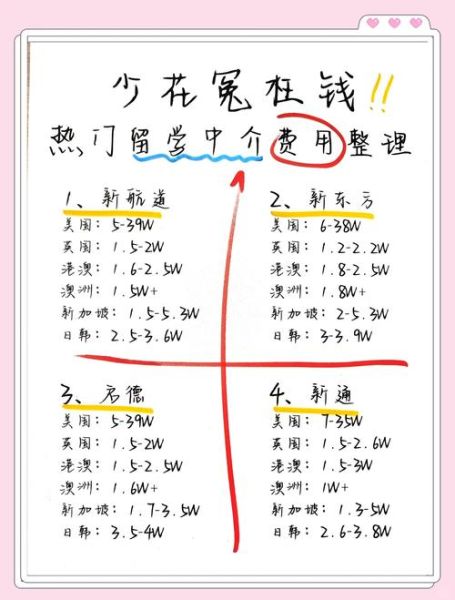 少花冤枉钱!!
热门留学中介费用整理
1、新航道
美国：5-39W
英国：1.5-2W
港澳：1.6-2.5W
澳洲：1.5W+
新加坡：1.5-5.3W
日韩：2.5-3.6W
2、新东方
美国：6-38W
英国：1.2-2.2W
港澳：1.8-2.5W
澳洲：1.8W+
新加坡：2-5.3W
日韩：3-3.9W
3、启德
美国：5-39W
英国：1.5-2W
港澳：1.5-2.5W
澳洲：1.6W+
新加坡：1.7-3.5W
日韩：3.5-4W
4、新通
美国：7-35W
英国：1.5-2.6W
港澳：1.5-3W
澳洲：1W+
新加坡：1.3-5W
日韩：2.6-3.8W